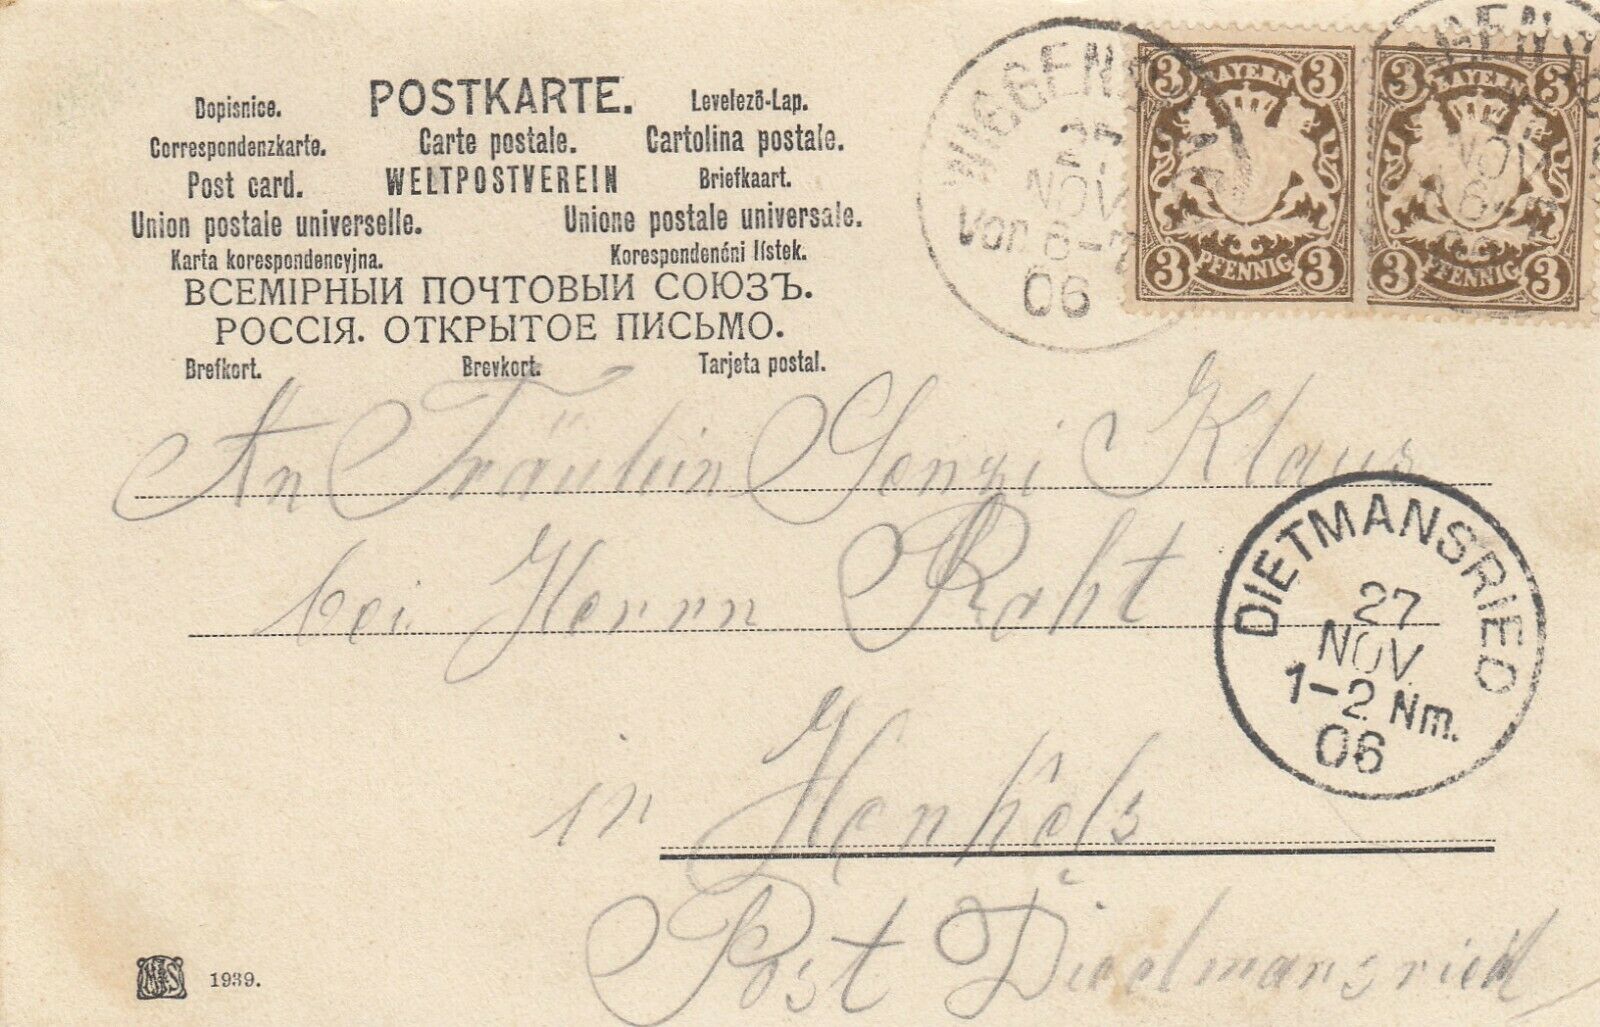 POSTKARTE.
Dopisnice. Levelező-Lap.
Correspondenzkarte. Carte postale. Cartolina postale.
Post card. WELTPOSTVEREIN Briefkaart.
Union postale universelle. Unione postale universale.
Karta korespondencyjna. Korespondenćni lístek.
ВСЕМІРНЫИ ПОЧТОВЫИ СОЮЗЪ.
РОССІЯ. ОТКРЫТОЕ ПИСЬМО.
Brefkort. Brevkort. Tarjeta postal.
NOV
Vor.
06
3 BAYERN 3
3 PFENNIG 3
3 BAYERN 3
3 PFENNIG 3
NOV
An Fräulein Senzi Klaus
bei Herrn Raht
in
Post
DIETMANSRIED
27
NOV.
1-2 Nm.
06
1939.